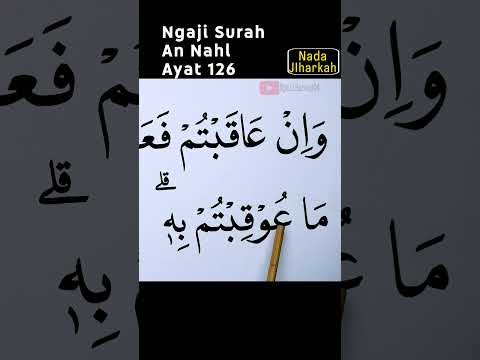 Ngaji Surah
An Nahl
Ayat 126
Nada
JIharkah
وَاِنْ عَاقَبْتُمْ فَعَ
مَا عُوْقِبْتُمْ بِهٖ ۗ